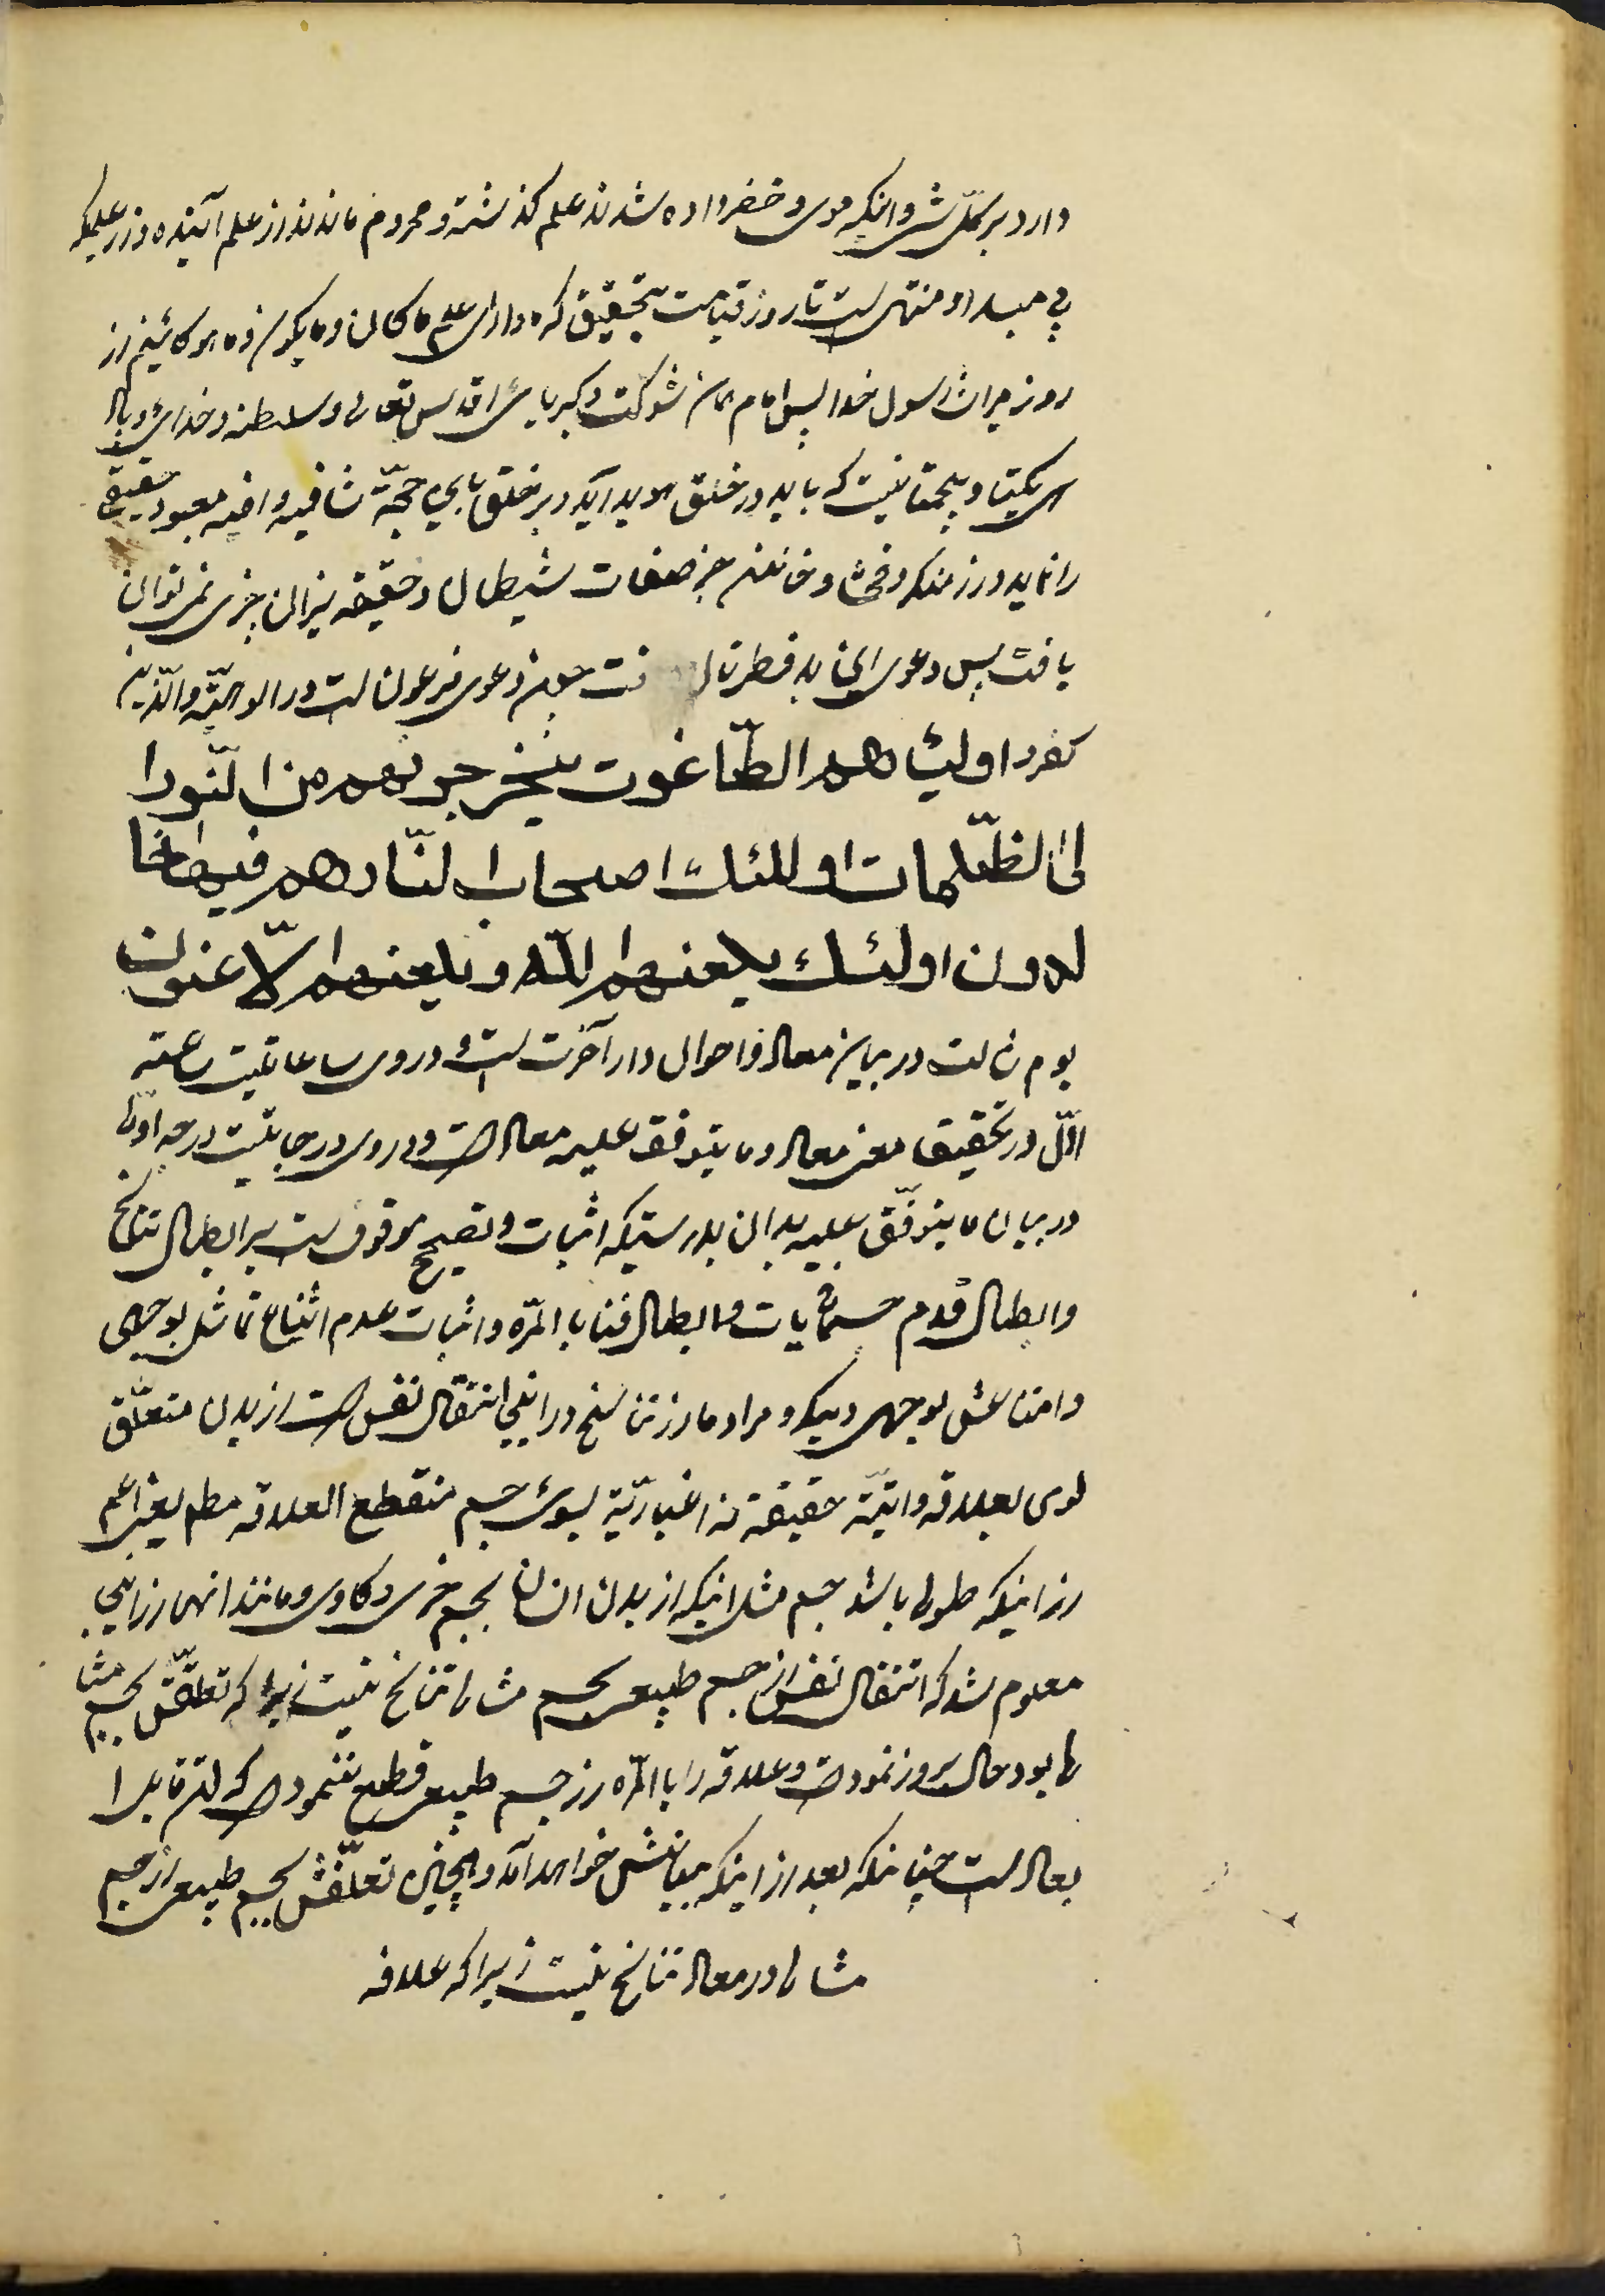 دارد بر کل شیء وانکه موسی و خضر داده شدند علم گذشته و محروم ماندند از علم آینده و از علمیکه
بی مبدا و منتهی است تا روز قیامت بتحقیق که دارای علم ما کان و ما یکون و ما هو کائنیم از
روز میراث رسول خدا پس امام همان شوکت و کبریای اقدس تعالی و سلطنه و خدای
یکتا و بیهمتا نیست که باید در خلق هویدا آید و بر خلق بایں حجّة شافیه وافیه معبود حقیقی
را نماید و از منکر و فحشا و خائنین جز صفات شیطان و حقیقه نیران چیزی نمی توان
یافت پس دعوی این بد فطرتان چون دعوی فرعون است در الوهیّته والّذین
کفروا اولیاهم الطّاغوت یخرجونهم من النّورا
لی الظّلمات اولئک اصحاب النّار هم فیها خا
لدون اولئک یلعنهم اللّه و یلعنهم الّاعنون
یوم ثالث در بیان معاد و احوال دار آخرت است و در وی ساعاتیست ساعته
اوّل در تحقیق معنی معاد و ما یتوقف علیه معاد است و در وی درجاتیست درجه اولی
در بیان ما یتوقّف علیه بدان بدرستیکه اثبات و تصحیح موقوف است بر ابطال تناسخ
وابطال قدم جسمانیات و ابطال فنا بالمرّه واثبات عدم امتناع تماثل بوجهی
وامتناعش بوجهی دیگر و مراد ما از تناسخ در اینجا انتقال نفس است از بدن متعلّق
بوی بعلاقه واقعیّه حقیقة نه اعتباریّة بسوی جسم منقطع العلاقه مطم یعنی اعم
از اینکه طولی باشد جسم مثل اینکه از بدن انسان بجسم خری و گاوی و مانند انها از اینجا
معلوم شد که انتقال نفس از جسم طبیعی بجسم مثالی تناسخ نیست زیرا که تعلّقش بجسم مثا
لی بود حال بروز نموده است و علاقه را بالمرّه از جسم طبیعی قطع ننموده است که
بعاد است چنانکه بعد از اینکه بیانش خواهد آمد و همچنین تعلّقش بجسم طبیعی از جسم
مثالی در معاد تناسخ نیست زیرا که علاقه